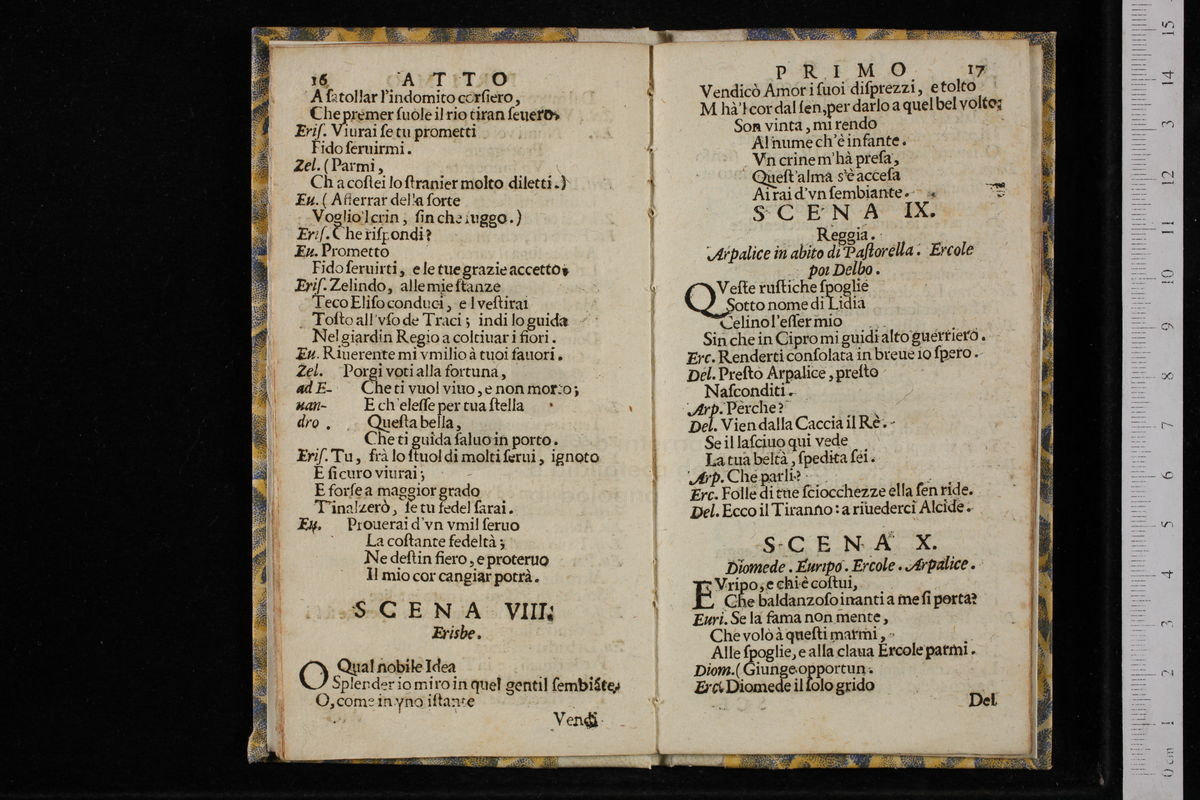 16 ATTO
A ſatollar l'indomito corſiero,
Che premer ſuole il rio tiran ſeuero.
Eriſ. Viurai ſe tu prometti
Fido ſeruirmi.
Zel. (Parmi,
Ch a coſtei lo ſtranier molto diletti.)
Eu. (Afferrar della ſorte
Voglio'l crin, ſin che fuggo.)
Eriſ. Che riſpondi?
Eu. Prometto
Fido ſeruirti, e le tue grazie accetto.
Eriſ. Zelindo, alle mie ſtanze
Teco Eliſo conduci, e l veſtirai
Toſto all'vſo de Traci; indi lo guida
Nel giardin Regio a coltiuar i fiori.
Eu. Riuerente mi vmilio à tuoi fauori.
Zel. Porgi voti alla fortuna,
ad E- Che ti vuol viuo, e non morto;
uan- E ch'eleſſe per tua ſtella
dro. Queſta bella,
Che ti guida ſaluo in porto.
Eriſ. Tu, frà lo ſtuol di molti ſerui, ignoto
E ſicuro viurai;
E forſe a maggior grado
T'inalzerò, ſe tu fedel ſarai.
Eu. Prouerai d'vn vmil ſeruo
La coſtante fedeltà;
Ne deſtin fiero, e proteruo
Il mio cor cangiar potrà.
SCENA VIII.
Erisbe.
O Qual nobile Idea
Splender io miro in quel gentil ſembiãte,
O, come in vno iſtante
Vendi
PRIMO 17
Vendicò Amor i ſuoi diſprezzi, e tolto
M hà'l cor dal ſen, per darlo a quel bel volto:
Son vinta, mi rendo
Al nume ch'è infante.
Vn crine m'hà preſa,
Queſt'alma s'è acceſa
Ai rai d'vn ſembiante.
SCENA IX.
Reggia.
Arpalice in abito di Paſtorella. Ercole
poi Delbo.
QVeſte ruſtiche ſpoglie
Sotto nome di Lidia
Celino l'eſſer mio
Sin che in Cipro mi guidi alto guerriero.
Erc. Renderti conſolata in breue io ſpero.
Del. Preſto Arpalice, preſto
Naſconditi.
Arp. Perche?
Del. Vien dalla Caccia il Rè.
Se il laſciuo qui vede
La tua beltà, ſpedita ſei.
Arp. Che parli?
Erc. Folle di tue ſciocchezze ella ſen ride.
Del. Ecco il Tiranno: a riuederci Alcide.
SCENA X.
Diomede. Euripo. Ercole. Arpalice.
EVripo, e chi è coſtui,
Che baldanzoſo inanti a me ſi porta?
Euri. Se la fama non mente,
Che volò à queſti marmi,
Alle ſpoglie, e alla claua Ercole parmi.
Diom. (Giunge opportun.
Erc. Diomede il ſolo grido
Del
0 cm 1 2 3 4 5 6 7 8 9 10 11 12 3 14 15